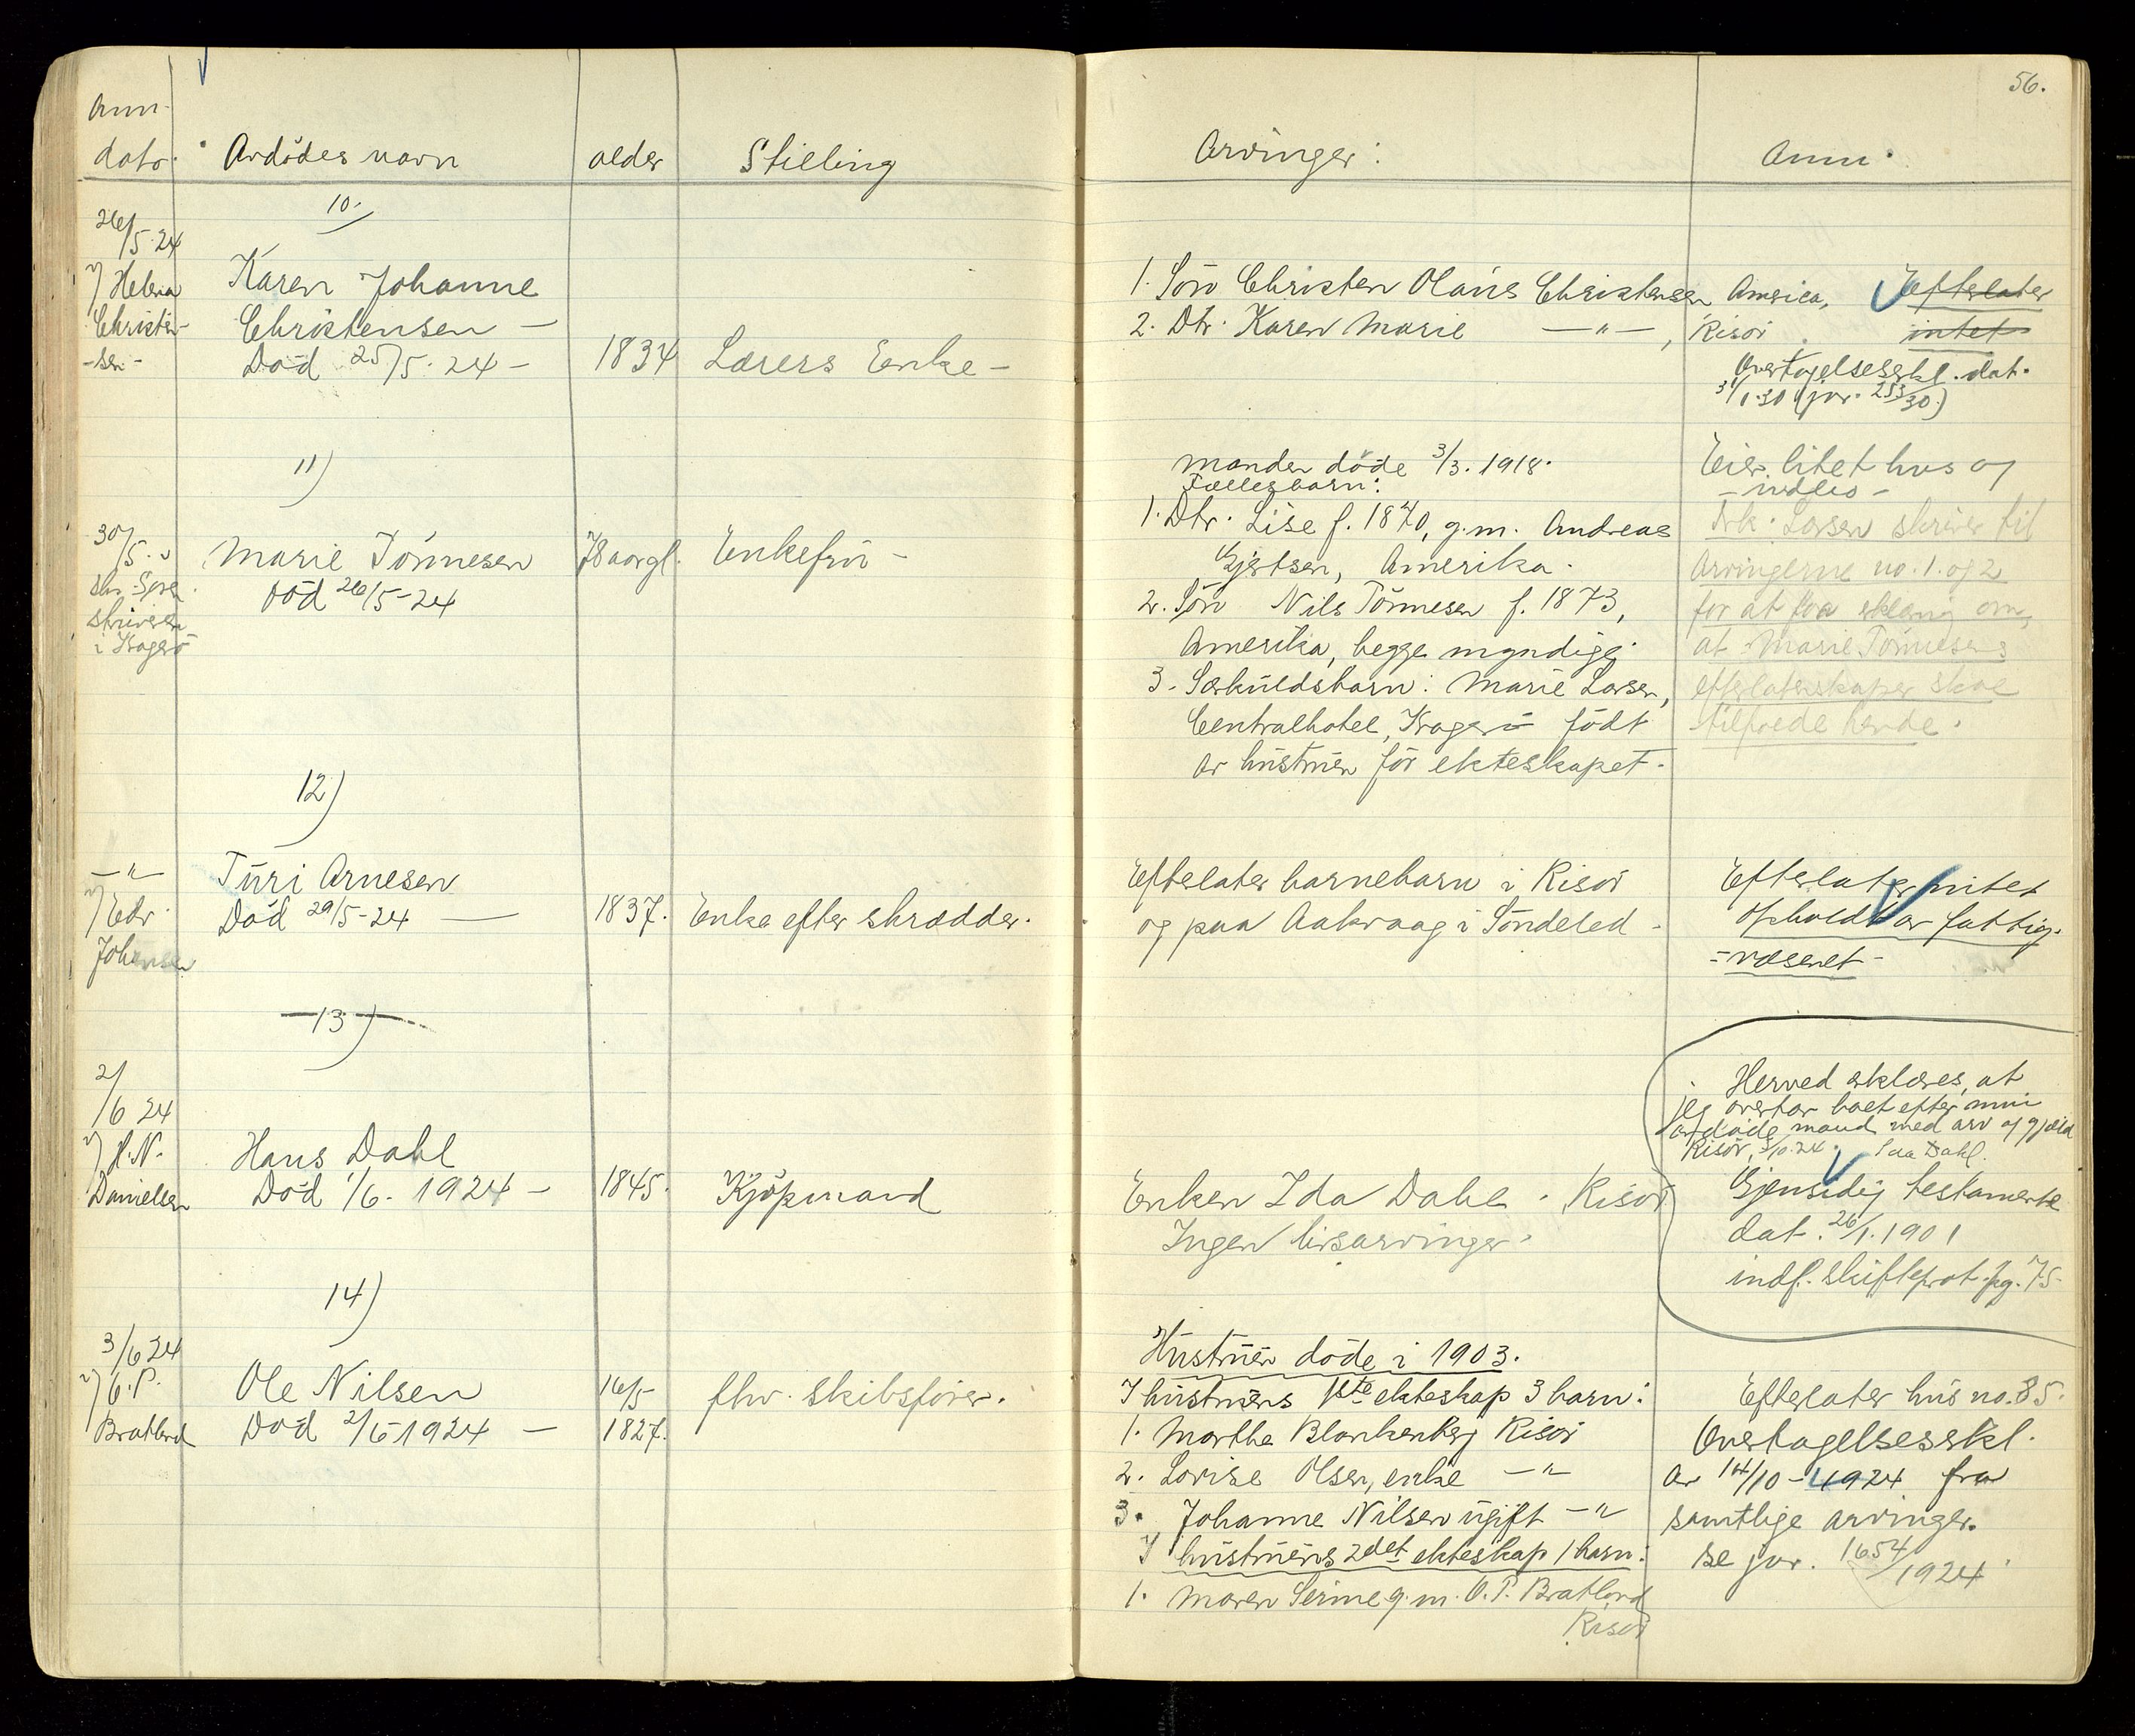 56.
Anm.
dato.
Avdödes navn
alder
Stilling
Arvinger:
Anm.
10.
26/5.24
v/ Helena
Christen-
-sen-
Karen Johanne
Christensen —
Död 25/5. 24 —
1834
Lærers Enke —
1. Sön Christen Olaus Christensen, America,
2. Dtr. Karen Marie —"—, Risör.
Efterlater
intet
Overtagelseserkl. dat.
31/1.30 (jnr. 253/30.)
11)
30/5. v
skr. Soren-
skriveren
i Kragerö
Marie Tönnesen
Död 26/5-24
78 aar gl.
Enkefru —
Manden döde 3/3. 1918.
Fællesbarn:
1. Dtr. Lise f. 1870, g.m. Andreas
Gjertsen, Amerika.
2. Sön Nils Tönnesen f. 1873,
Amerika, begge myndige.
3. Særkuldsbarn: Marie Larsen,
Centralhotel, Kragerö födt
av hustruen för ekteskapet.
Eier litet hus og
- indbo -
Frk. Larsen skriver til
Arvingerne no. 1. og 2
for at faa erklæring om,
at Marie Tönnesens
efterladenskaper skal
tilfalde hende.
12)
—"—
v/ Edv.
Johansen
Turi Arnesen
Död 29/5-24 —
1837.
Enke efter skrædder.
Efterlater barnebarn i Risör
og paa Aakvaag i Söndeled.
Efterlater intet
opholdt av fattig-
- væsenet -
13)
2/6 24
v/ H.N.
Danielsen
Hans Dahl
Död 1/6. 1924 —
1845.
Kjöpmand
Enken Ida Dahl. Risör
Ingen livsarvinger.
Herved erklæres, at
jeg overtar boet efter min
avdöde mand med arv og gjæld
Risör, 3/10.24. Ida Dahl.
Gjensidig testamente
dat. 26/1. 1901
indf. skifteprot. pg. 75.
14)
3/6 24
v/ O.P.
Bratland
Ole Nilsen
Död 2/6-1924 —
16/5
1827.
fhv. skibsförer.
Hustruen döde i 1903.
I hustruens 1ste ekteskap 3 barn:
1. Marthe Blankenberg Risör
2. Lovise Olsen, enke —"—
3. Johanne Nilsen ugift —"—
I hustruens 2det ekteskap 1 barn:
1. Maren Serine g.m. O.P. Bratland
Risör
Efterlater hus no. 85.
Overtagelseserkl.
av 14/10 - 1924 fra
samtlige arvinger.
se jnr. 1654/1924.